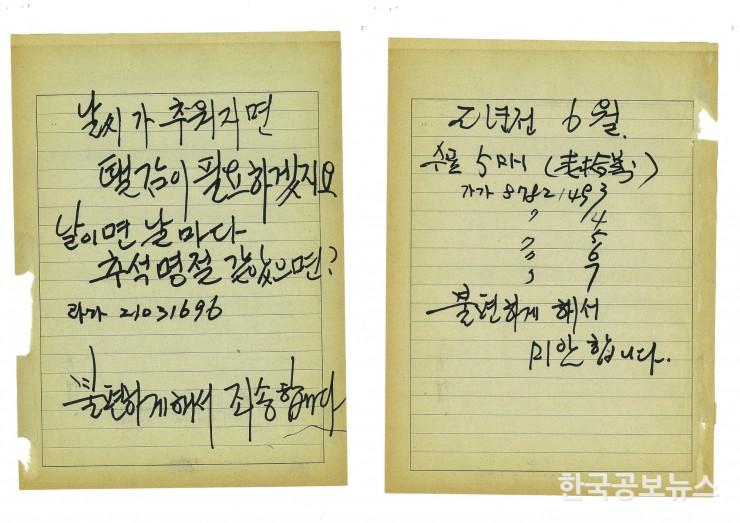 날씨가 추워지면
땔감이 필요하겠지요
날이면 날마다
추석명절 같았으면?
라가 21031696
불편하게해서 죄송합니다
년전 6월.
수표 5매 (壱拾萬)
가가 87821493
〃 4
〃 5
〃 6
〃 7
불편하게 해서
미안합니다.
한국공보뉴스